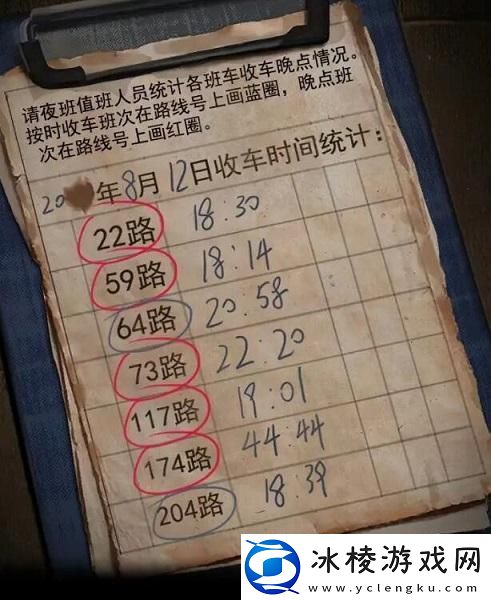 请夜班值班人员统计各班车收车晚点情况。
按时收车班次在路线号上画蓝圈，晚点班
次在路线号上画红圈。
20 年8月12日收车时间统计：
22路 18:30
59路 18:14
64路 20:58
73路 22:20
117路 19:01
174路 44:44
204路 18:39
冰棱游戏网
www.yclengku.com